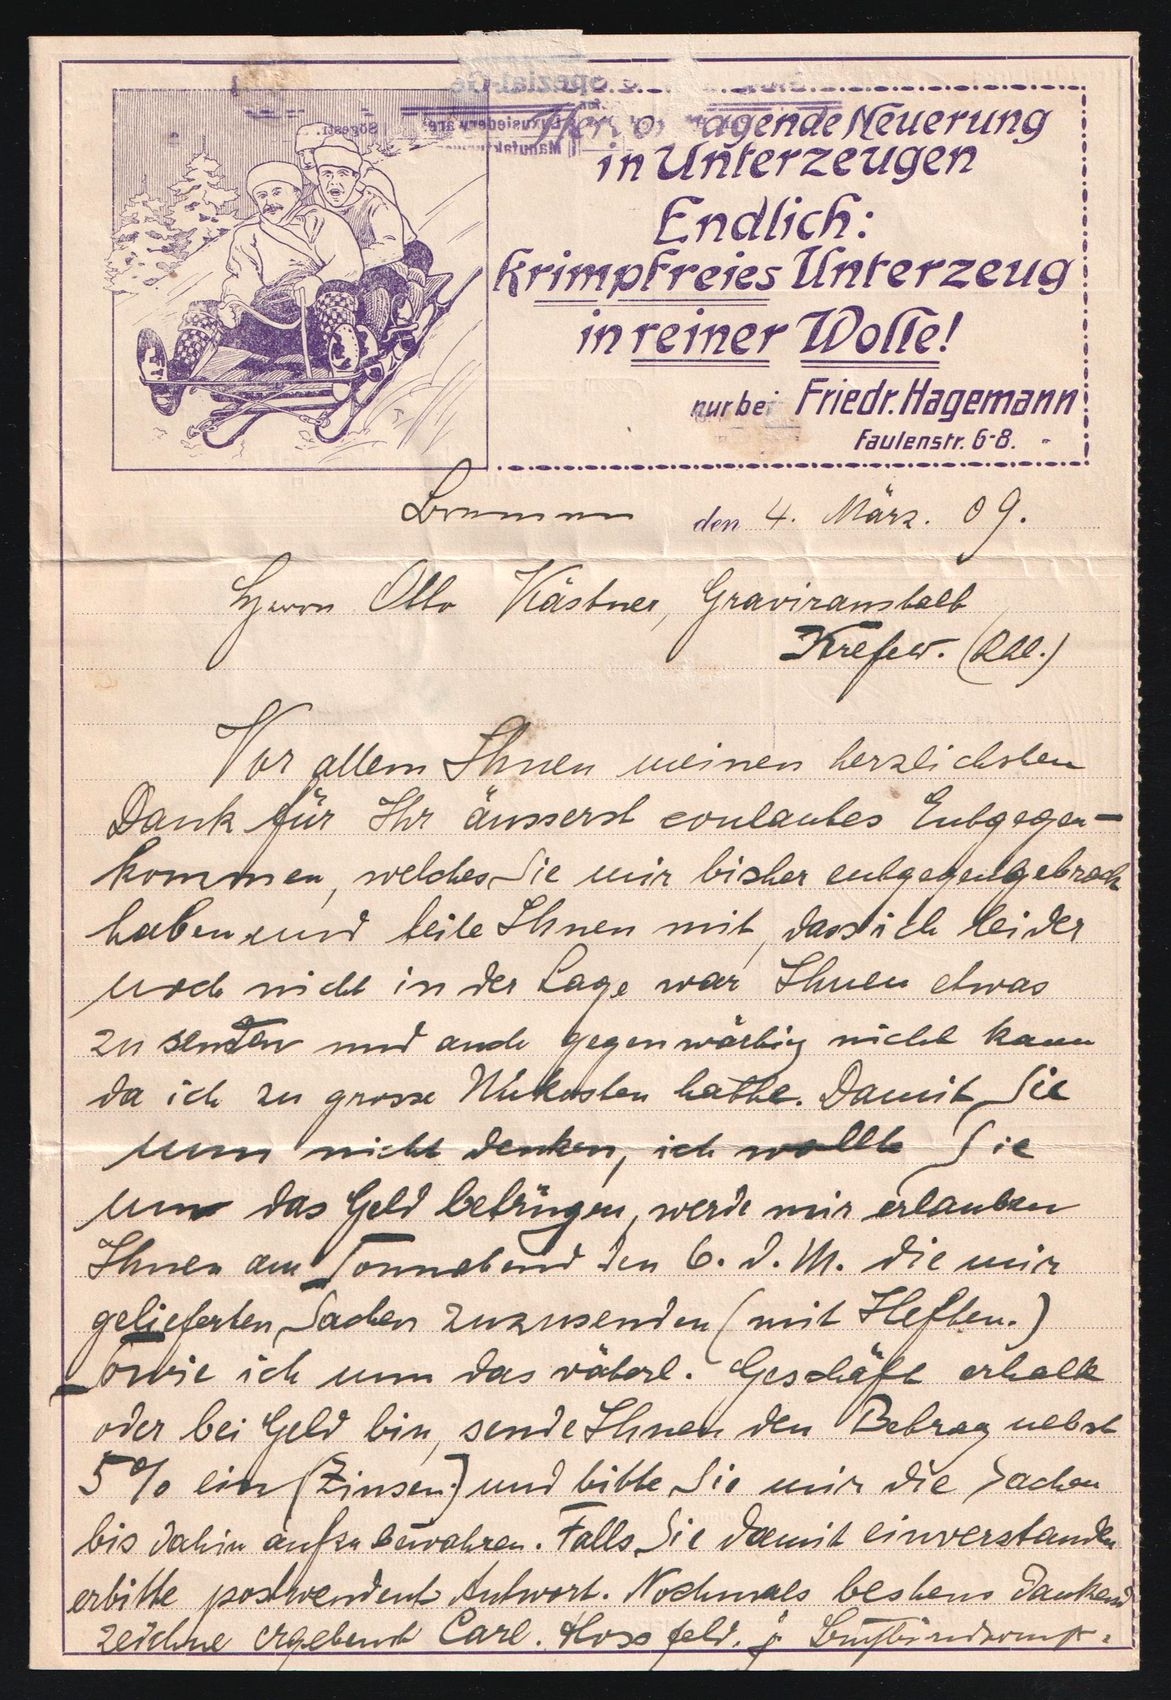 Spezial-Ge
Hervorragende Neuerung
in Unterzeugen
Endlich:
krimpfreies Unterzeug
in reiner Wolle!
nur bei Friedr. Hagemann
Faulenstr. 6-8.
Sögestr.
Manufaktur
Bremen den 4. März. 09.
Herrn Otto Kästner, Graviranstalt
Krefeld. (Rhl.)
Vor allem Ihnen meinen herzlichsten
Dank für Ihr äusserst coulantes Entgegen-
kommen, welches Sie mir bisher entgegengebrach
haben und teile Ihnen mit, dass ich leider
noch nicht in der Lage war Ihnen etwas
zu senden und auch gegenwärtig nicht kann
da ich zu grosse Unkosten hatte. Damit Sie
nun nicht denken, ich wollte Sie
um das Geld betrügen, werde mir erlauben
Ihnen am Sonnabend den 6. d. M. die mir
gelieferten Sachen zuzusenden (mit Heften.)
Sowie ich nun das väterl. Geschäft erhalte
oder bei Geld bin, sende Ihnen den Betrag nebst
5% ein (Zinsen.) und bitte Sie mir die Sachen
bis dahin aufzubewahren. Falls Sie damit einverstanden
erbitte postwendent Antwort. Nochmals bestens dankend
zeichne ergebenst Carl. Hossfeld.